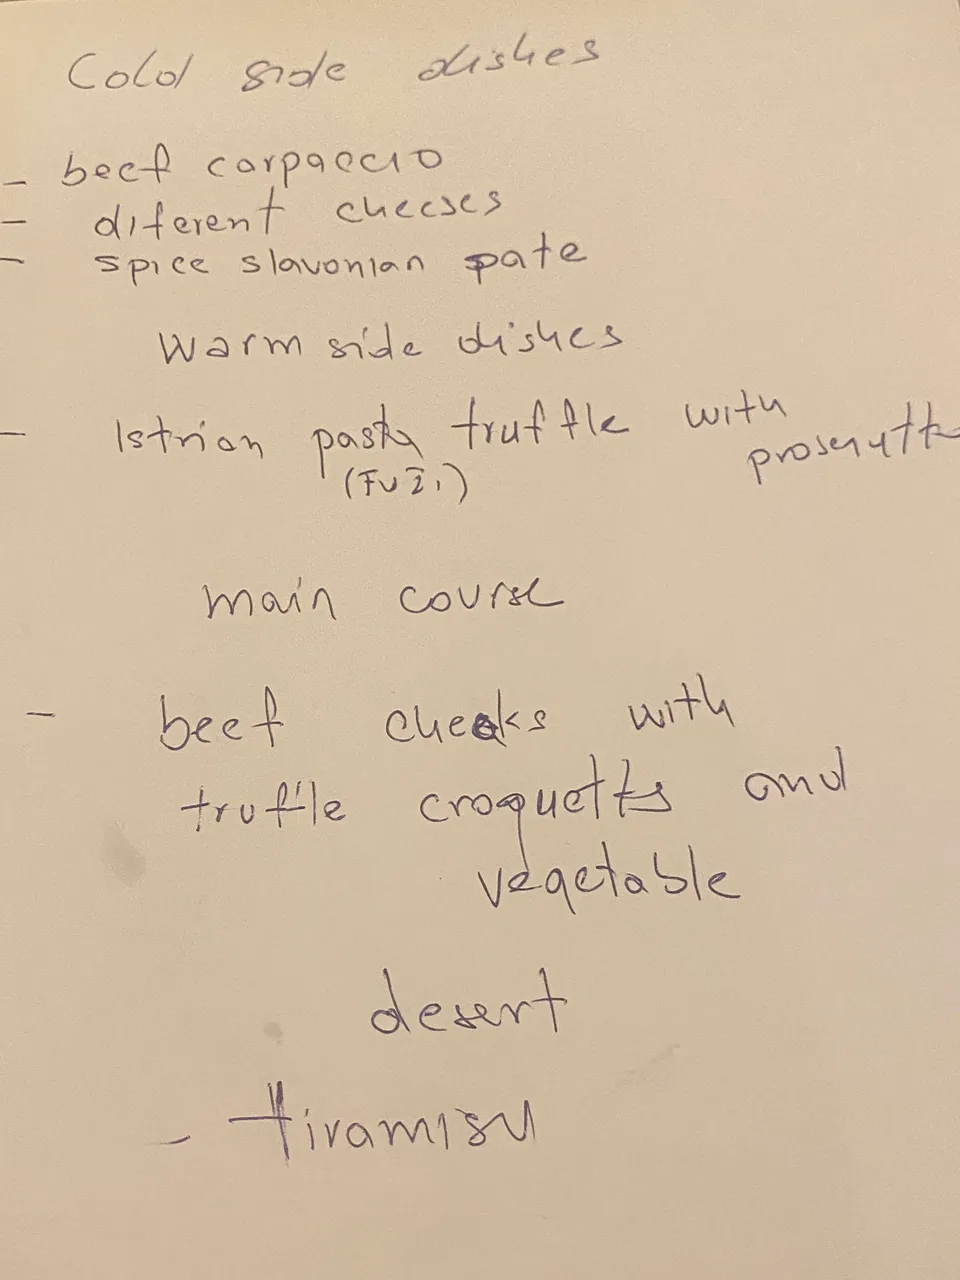 Cold side dishes
- beef carpaccio
- diferent cheeses
- spice slavonian pate
Warm side dishes
- Istrian pasta truffle with
prosciutto
(Fuži)
main course
- beef cheeks with
truffle croquetts and
vegetable
desert
- tiramisu